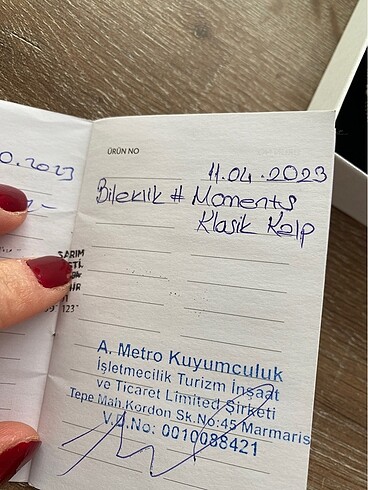 ÜRÜN NO
11.04.2023
Bileklik # Moments
Klasik Kalp
0.2023
SARIM
ŞTİ.
A. Metro Kuyumculuk
İşletmecilik Turizm İnşaat
ve Ticaret Limited Şirketi
Tepe Mah.Kordon Sk.No:45 Marmaris
V.D.No: 0010088421